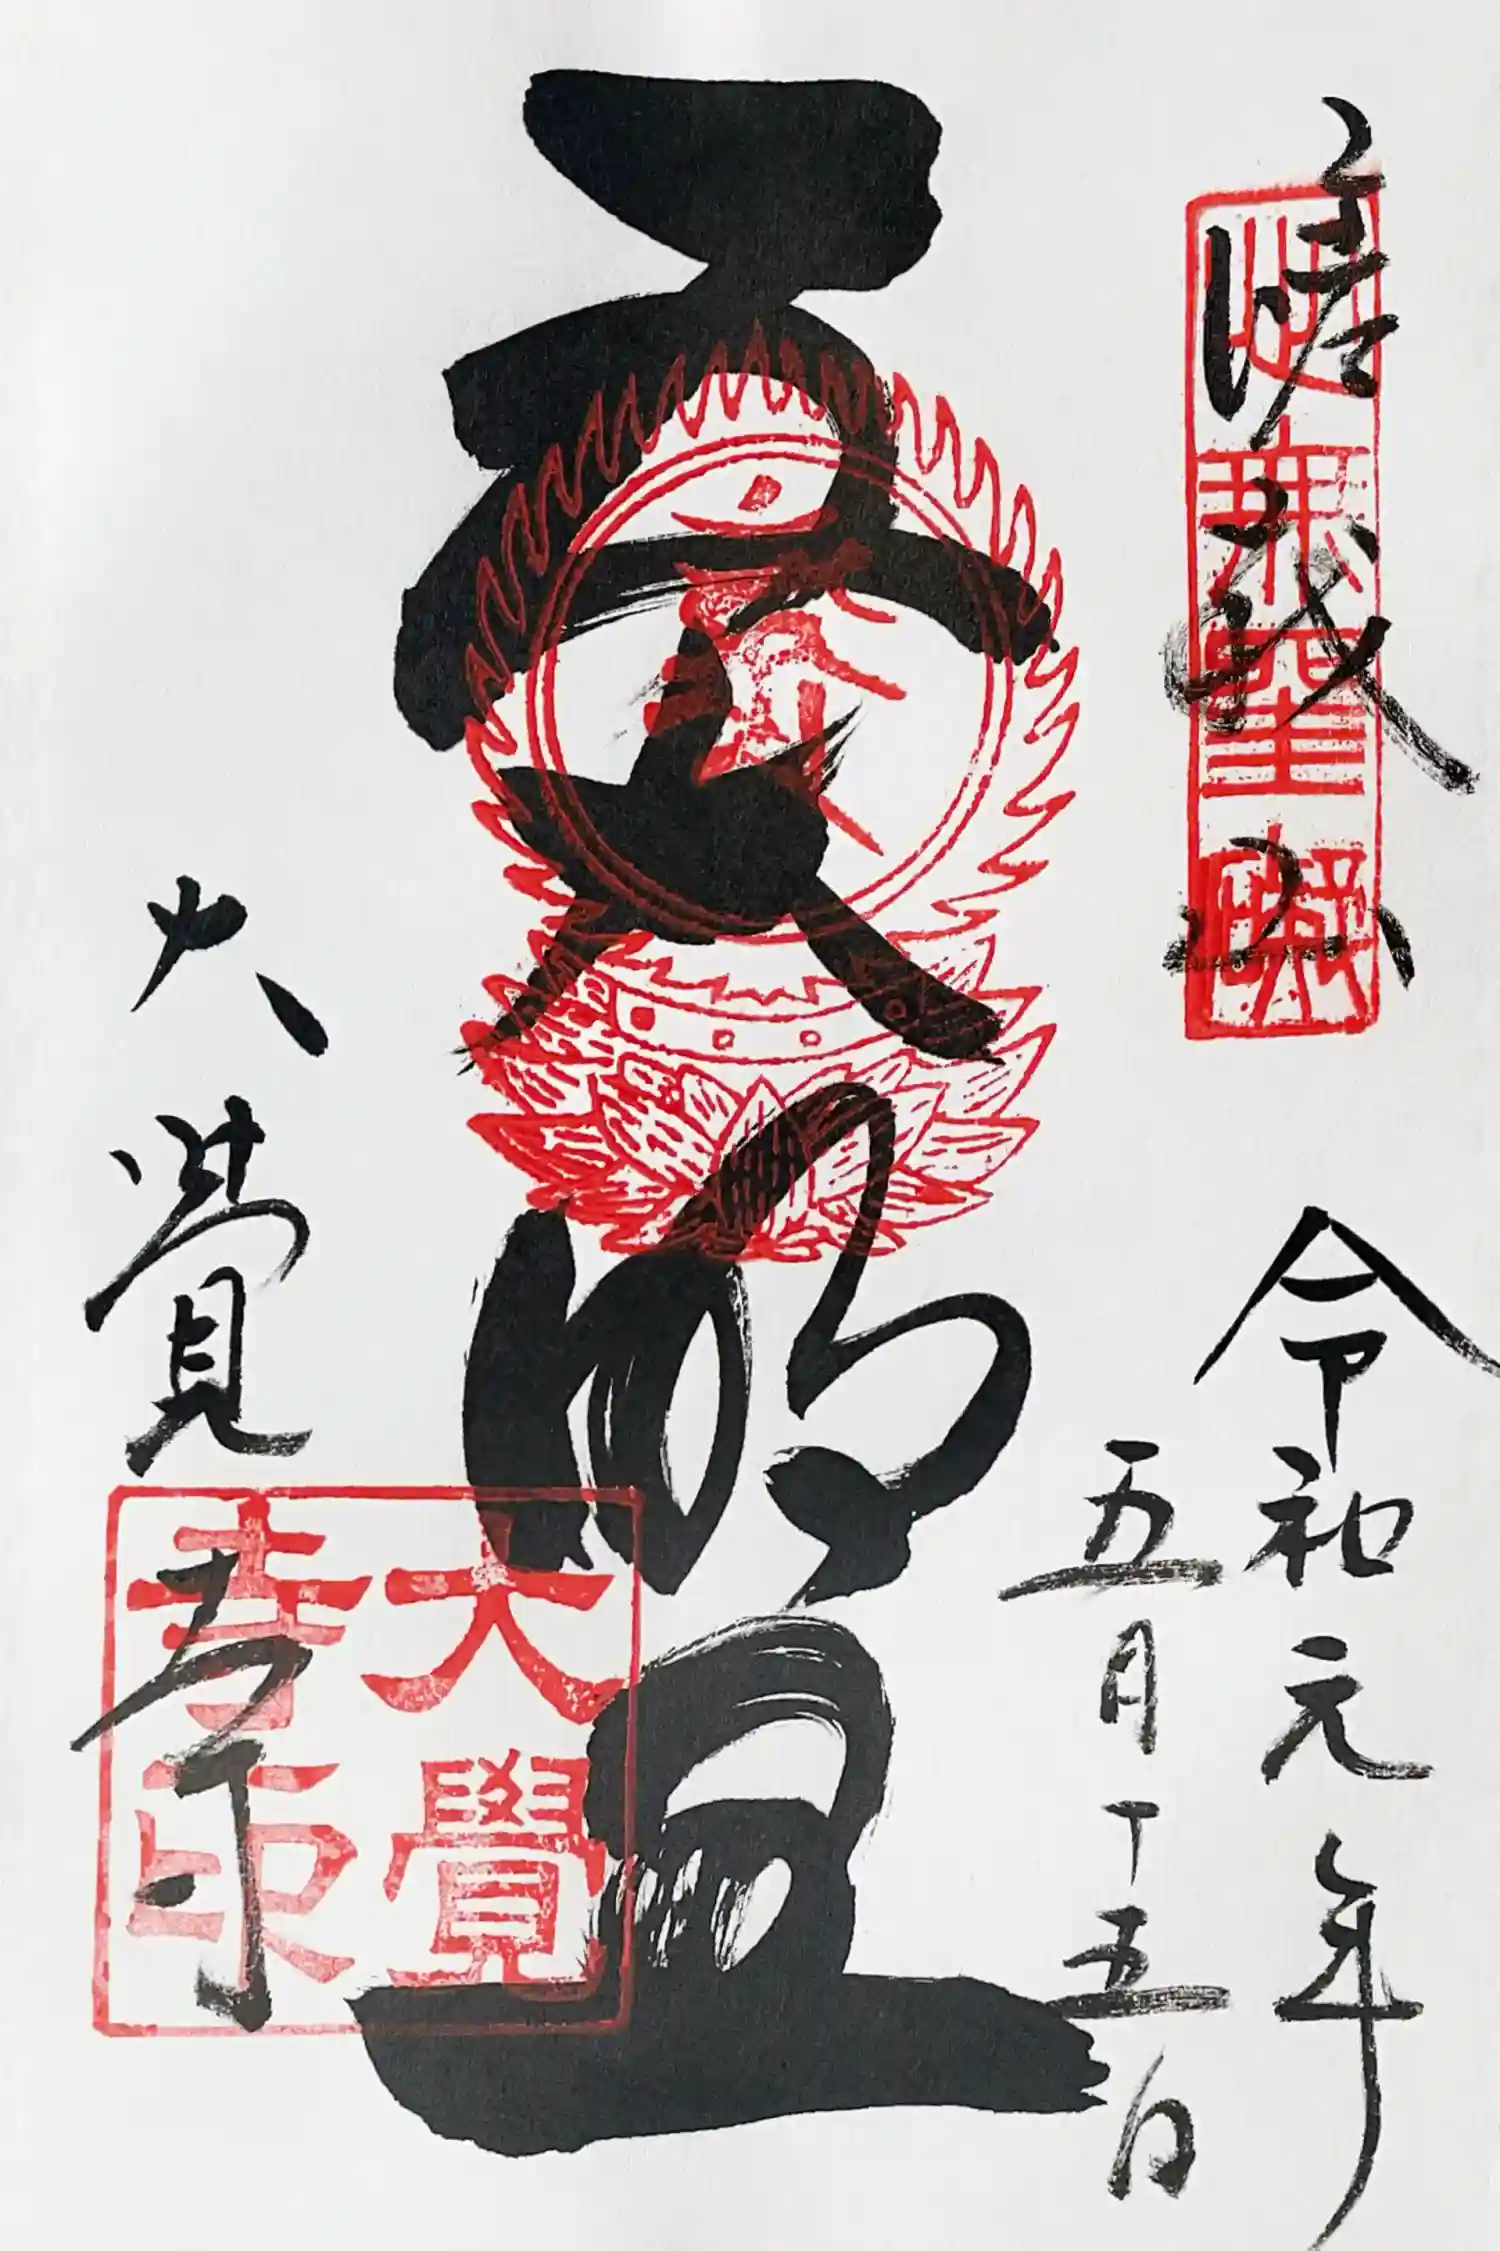 嵯峨山
令和元年
五月十五日
五大明王
大覚寺
大覺
寺印